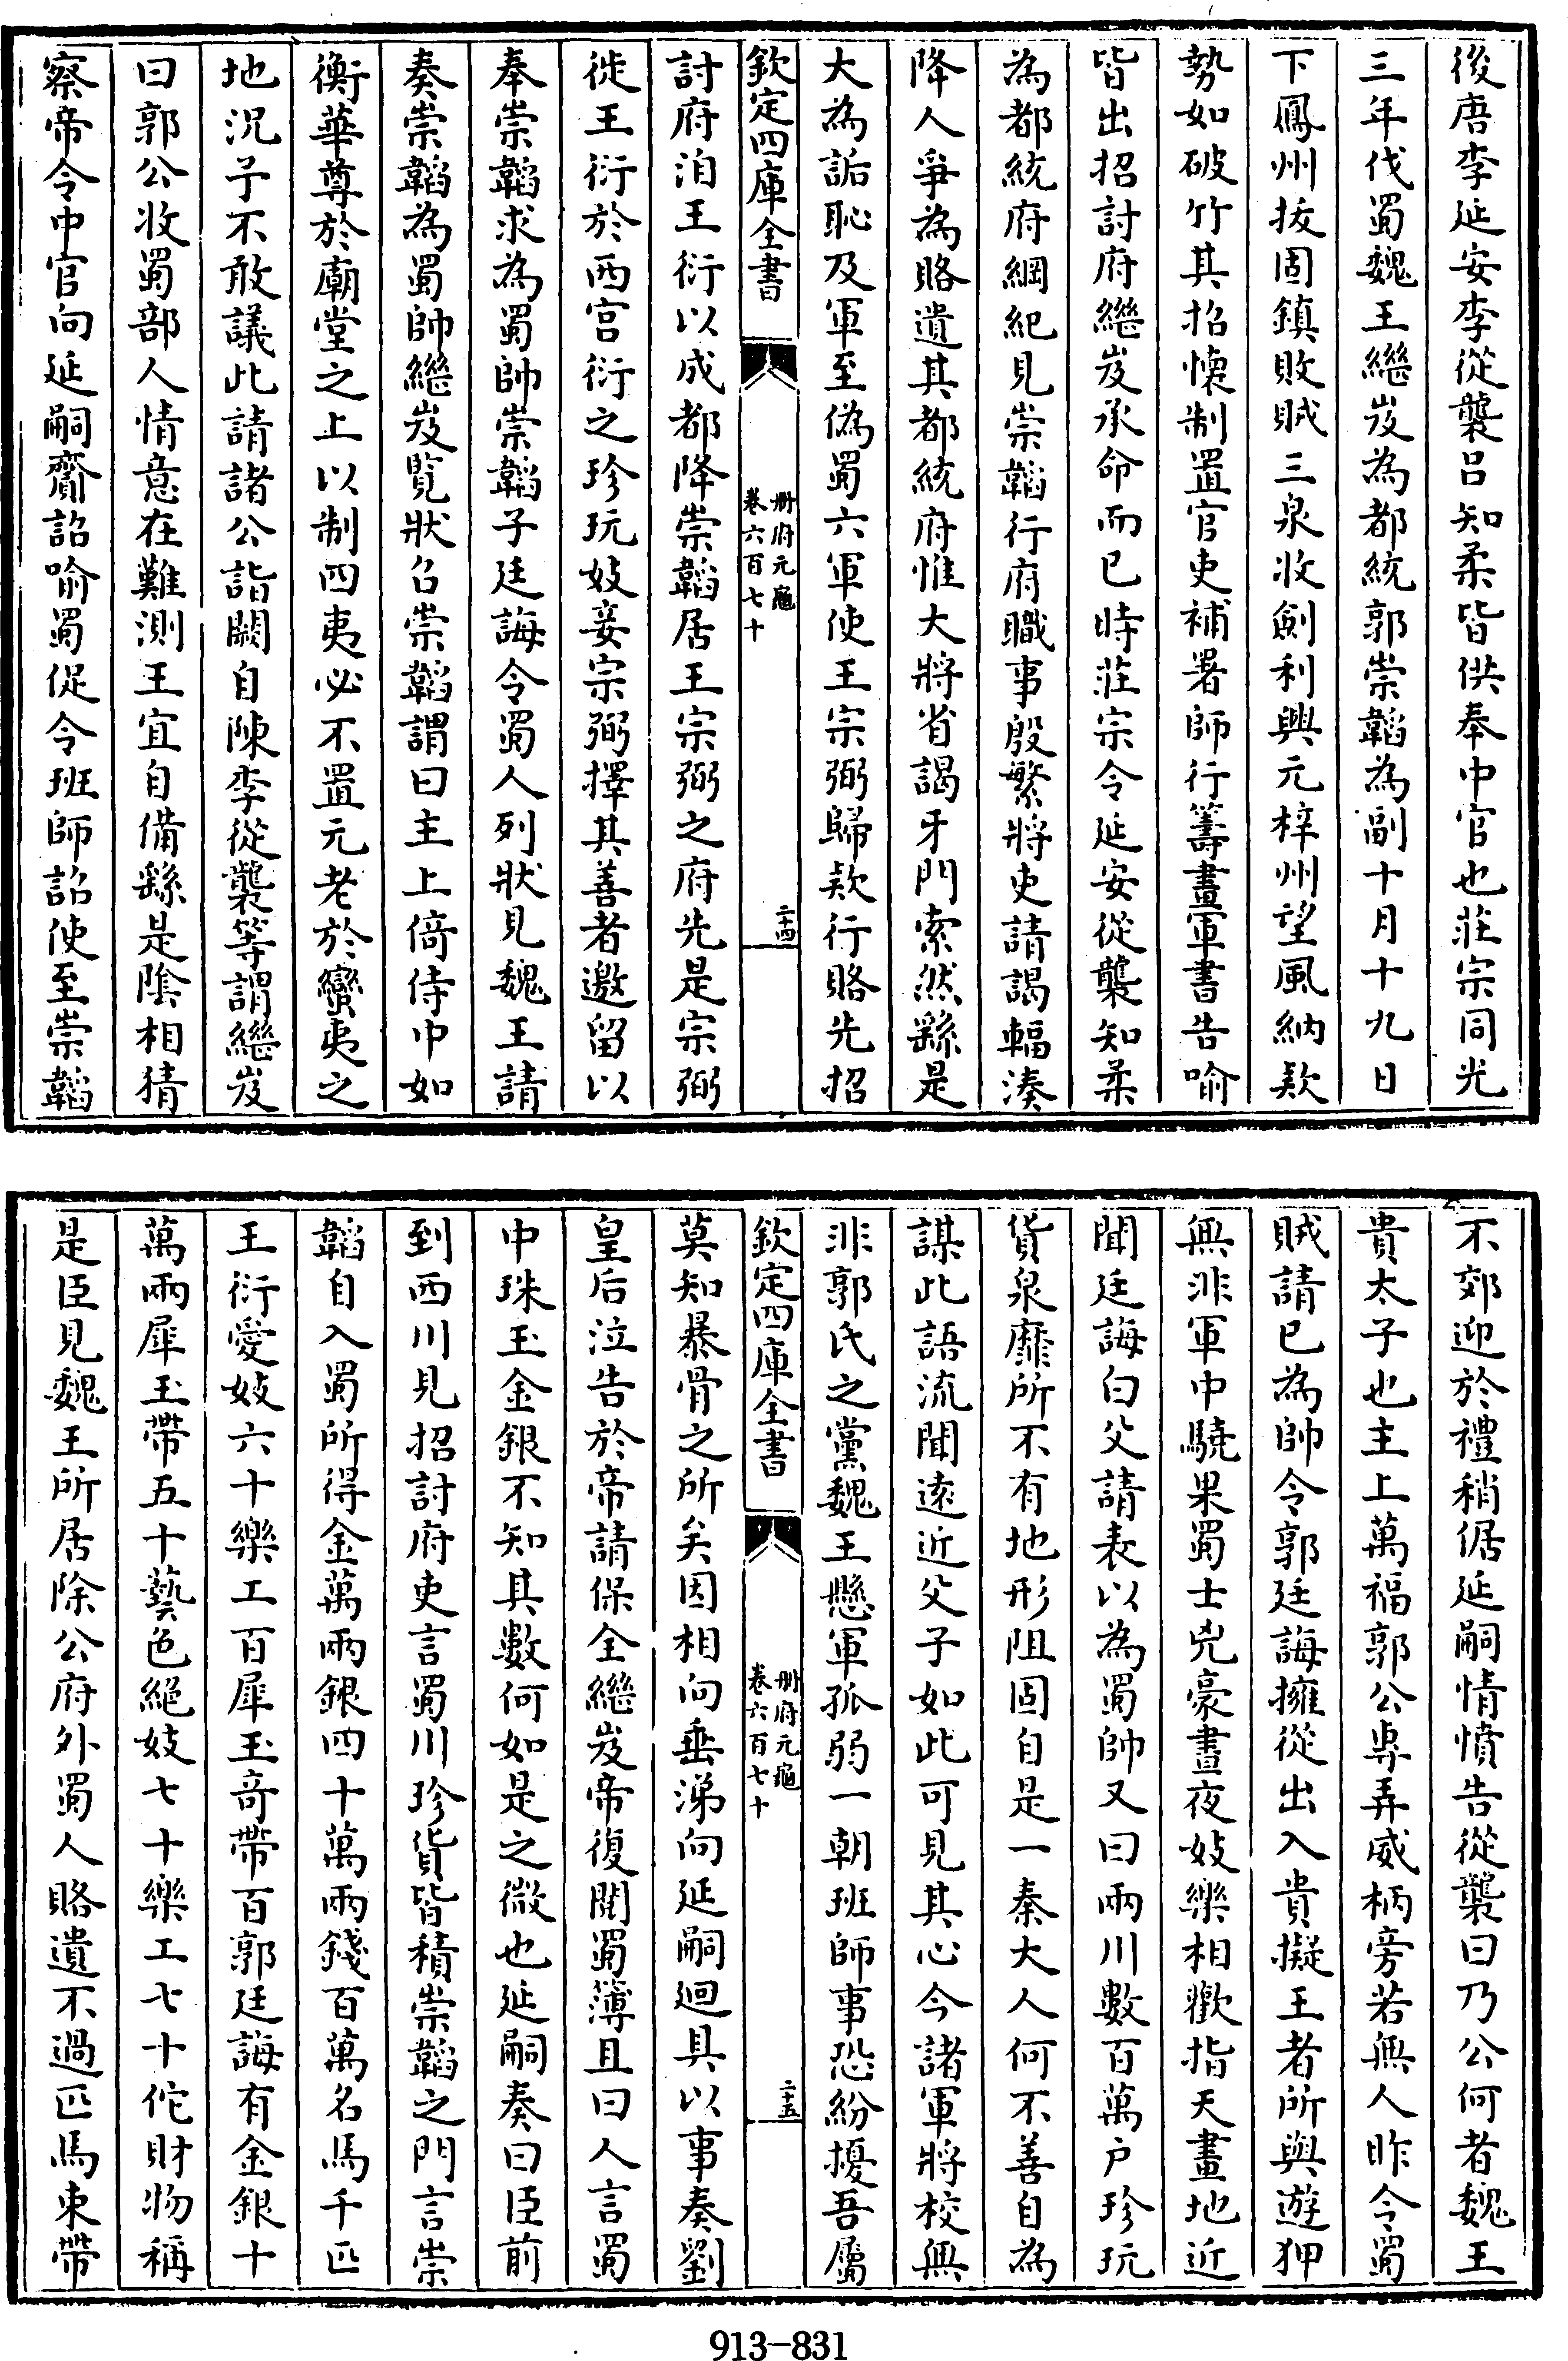 後唐李延安李從襲吕知柔皆供奉中官也莊宗同光
三年伐蜀魏王繼岌為都統郭崇韜為副十月十九日
下鳳州拔固鎮敗賊三泉收劍利興元梓州望風納欵
勢如破竹其招懷制置官吏補署師行籌畫軍書告喻
皆出招討府繼岌承命而已時莊宗令延安從襲知柔
為都統府綱紀見崇韜行府職事殷繁將吏請謁輻湊
降人爭為賂遺其都統府惟大將省謁牙門索然繇是
大為詬恥及軍至偽蜀六軍使王宗弼歸欵行賂先招
欽定四庫全書
册府元龜
卷六百七十
二十四
討府洎王衍以成都降崇韜居王宗弼之府先是宗弼
徙王衍於西宫衍之珍玩妓妾宗弼擇其善者邀留以
奉崇韜求為蜀帥崇韜子廷誨令蜀人列狀見魏王請
奏崇韜為蜀帥繼岌覧狀召崇韜謂曰主上倚侍中如
衡華尊於廟堂之上以制四夷必不置元老於蠻夷之
地况予不敢議此請諸公詣闕自陳李從襲等謂繼岌
曰郭公收蜀部人情意在難測王宜自備繇是隂相猜
察帝令中官向延嗣齎詔喻蜀促令班師詔使至崇韜
不郊迎於禮稍倨延嗣情憤告從襲曰乃公何者魏王
貴太子也主上萬福郭公專弄威柄旁若無人昨令蜀
賊請已為帥令郭廷誨擁從出入貴擬王者所與遊狎
無非軍中驍果蜀士兇豪晝夜妓樂相歡指天畫地近
聞廷誨白父請表以為蜀帥又曰兩川數百萬户珍玩
貨泉靡所不有地形阻固自是一秦大人何不善自為
謀此語流聞遠近父子如此可見其心今諸軍將校無
非郭氏之黨魏王懸軍孤弱一朝班師事恐紛擾吾屬
欽定四庫全書
册府元龜
卷六百七十
二十五
莫知暴骨之所矣因相向垂涕向延嗣廻具以事奏劉
皇后泣告於帝請保全繼岌帝復閱蜀簿且曰人言蜀
中珠玉金銀不知其數何如是之微也延嗣奏曰臣前
到西川見招討府吏言蜀川珍貨皆積崇韜之門言崇
韜自入蜀所得金萬兩銀四十萬兩錢百萬名馬千匹
王衍愛妓六十樂工百犀玉竒帶百郭廷誨有金銀十
萬兩犀玉帶五十藝色絕妓七十樂工七十佗財物稱
是臣見魏王所居除公府外蜀人賂遺不過匹馬束帶
913-831